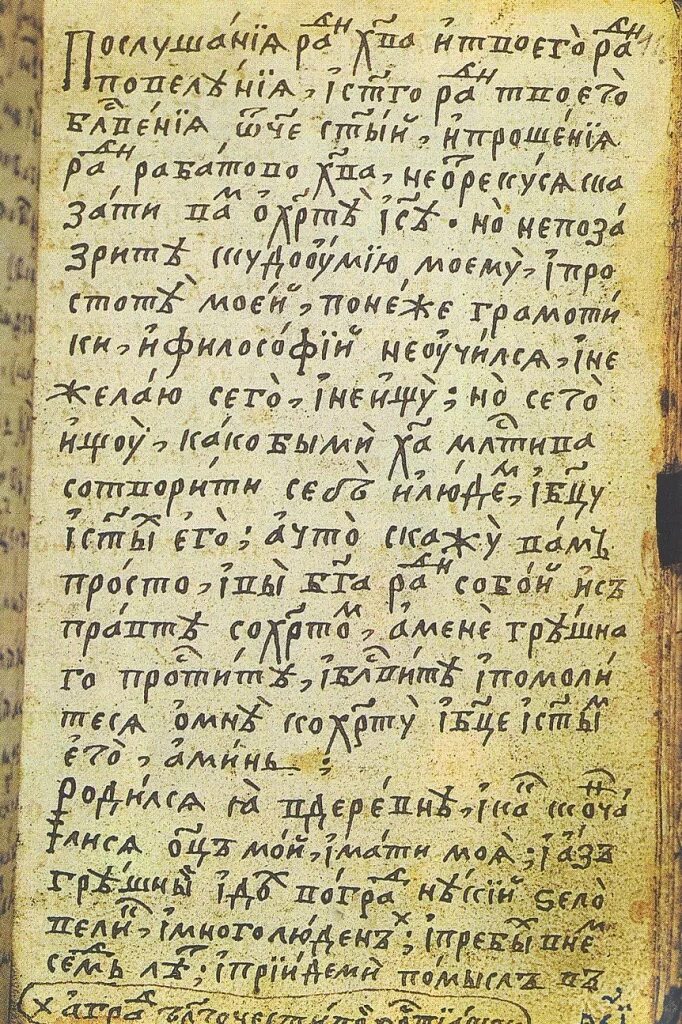 Послꙋша́нїѧ радⷩ хв҃а и҆твоего̀ радⷩ
повелѣ́нїѧ, і҆ст҃го радⷩ твоего̀
бл҃венїѧ ѿч҃е ст҃ы́й, и҆проше́нїѧ
радⷩ раба́тово хв҃а, неѿрекꙋ́сѧ ска
за́ти ваⷨ ѡ҆хрⷭ҇тѣ̀ і҆с҃ѣ. но̀ непоза́
зритѣ скꙋдооу҆́мїю моемꙋ̀, і҆про
стотѣ̀ мое́й, поне́же грамоти́
ки, и҆философі́й неоучи́лсѧ, і҆не
жела́ю сего̀, і҆неищꙋ̀; но̀ сего̀
и҆щоу̀, ка́ко бы мѝ хⷭ҇а млⷭ҇тива
сотвори́ти себѣ̀ и҆лю́деⷨ, і҆бц҃ꙋ
і҆ст҃ыⷯ е҆го̀; а҆что̀ скажꙋ̀ ва́мъ
про́сто, і҆вы̀ бг҃а радⷩ собо́й и҆съ
пра́втѣ сохрⷭ҇тоⷨ, а҆менѐ грѣ́шна
го проⷭ҇ти́тѣ, і҆бл҃ви́тѣ і҆помоли́
тесѧ ѡ҆мнѣ̀ кохрⷭ҇тꙋ̀ і҆бц҃е і҆ст҃ыⷨ
е҆го̀, а҆ми́нь ;
Роди́лсѧ ꙗ҆ вдере́внѣ, і҆каⷦ скоⷩча́
лисѧ оц҃ъ мо́й, і҆ма́ти моѧ̀; і҆а҆́зъ
грѣ́шны і҆доⷯ во́граⷣ нѣ́кїй ѕело̀
велиⷦ, і҆многолю́денъ; і҆пребыⷯ внеⷨ
се́мъ лѣⷮ; і҆прїи́де мѝ по́мыслъ въ